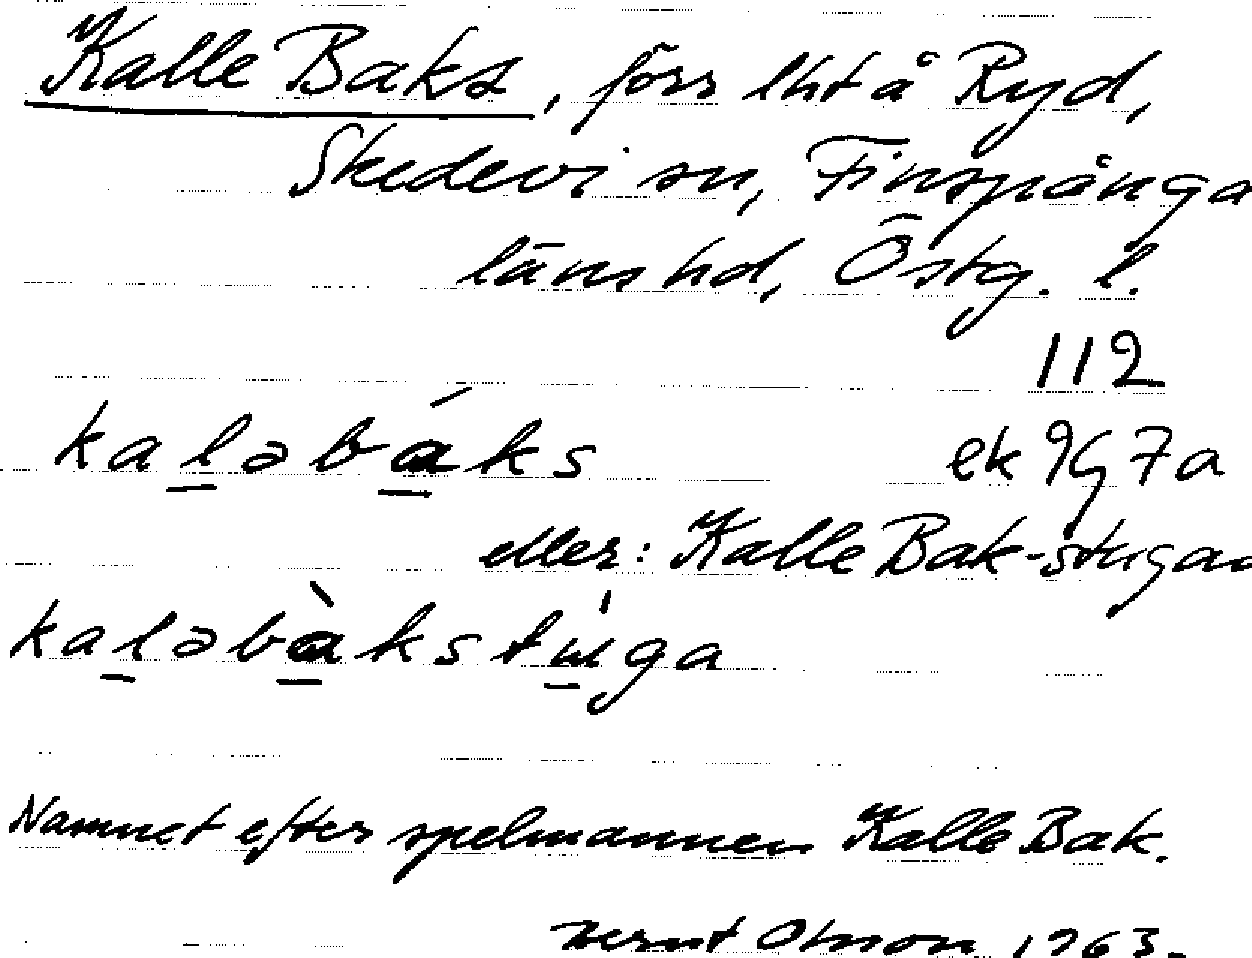 Kalle Baks, förr lht å Ryd,
Skedevi sn, Finspånga
läns hd, Östg. l.
112
kaḻəbá̱ks ek 9G7a
eller: Kalle Bak-stugan
kaḻəbà̱kstu̱ga
Namnet efter spelmannen Kalle Bak.
Bernt Olsson 1963.